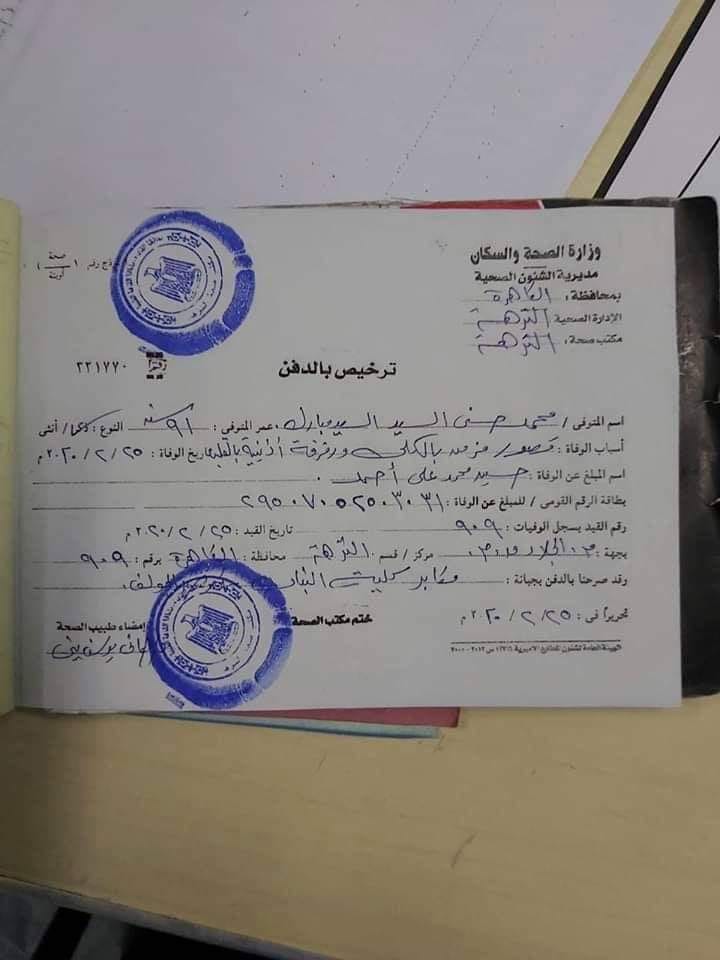 وزارة الصحة والسكان
مديرية الشئون الصحية
بمحافظة : القاهرة
الإدارة الصحية النزهة
مكتب صحة : النزهة
صحة
نموذج رقم ( ١ )
رقم
٢٢١٧٧٠
ترخيص بالدفن
اسم المتوفى / محمد حسنى السيد السيد مبارك . عمر المتوفى : ٩١ سنة النوع : ذكر / أنثى
أسباب الوفاة : قصور مزمن بالكلى ورفرفة أذنية بالقلب تاريخ الوفاة : ٢٥ / ٢ / ٢٠٢٠ م
اسم المبلغ عن الوفاة : حسيد محمد على أحمد .
بطاقة الرقم القومى / للمبلغ عن الوفاة :
رقم القيد بسجل الوفيات : ٩٠٩ تاريخ القيد : ٢٥ / ٢ / ٢٠٢٠ م
بجهة : م . الجلاء مركز / قسم . النزهة محافظة : القاهرة برقم : ٩٠٩
وقد صرحنا بالدفن بجبانة : مقابر
تحريراً فى : ٢٥ / ٢ / ٢٠٢٠ م
ختم مكتب الصحة
إمضاء طبيب الصحة
الهيئة العامة لشئون المطابع الاميرية